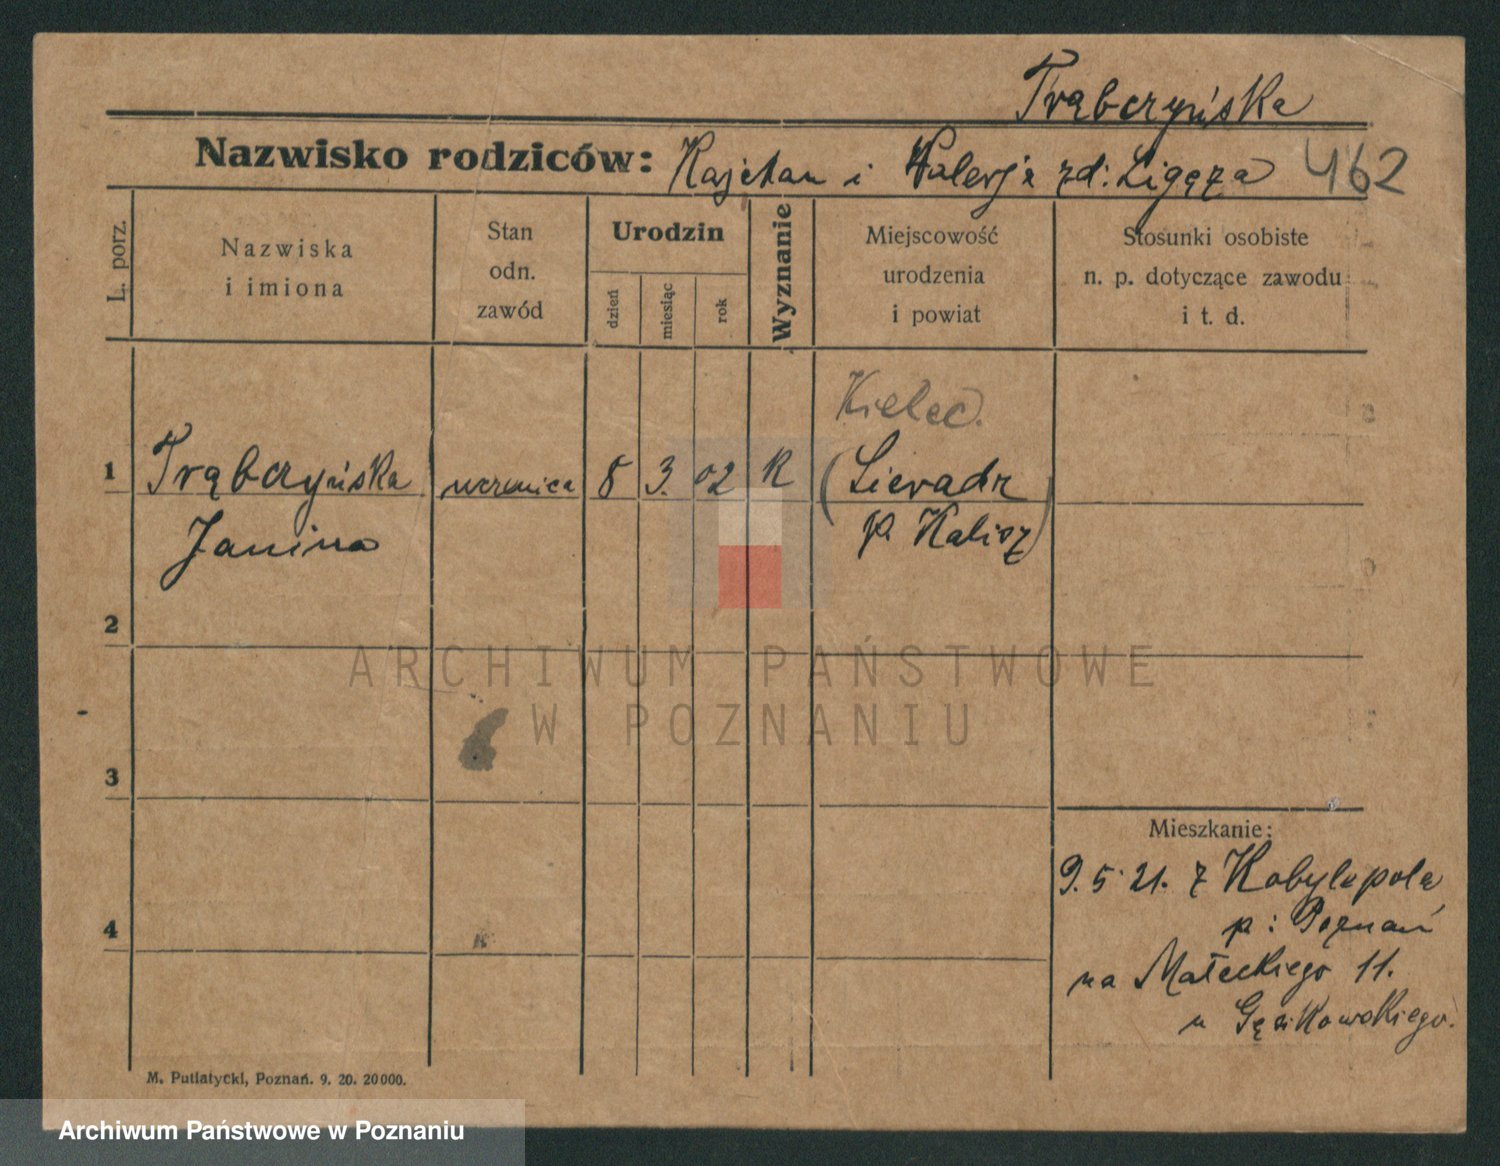 Trąbczyńska
Nazwisko rodziców: Kajetan i Walerja zd: Ligęza 462
L. porz.
Nazwiska
i imiona
Stan
odn.
zawód
Urodzin
dzień
miesiąc
rok
Wyznanie
Miejscowość
urodzenia
i powiat
Stosunki osobiste
n. p. dotyczące zawodu
i t. d.
Kielec.
1 Trąbczyńska uczenica 8 3. 02 K (Sieradz
Janina p. Kalisz)
2
3
Mieszkanie:
9. 5. 21. z Kobylepole
4
p: Poznań
na Małeckiego 11.
u Gąsikowskiego.
M. Putiatycki, Poznań. 9. 20. 20000.
ARCHIWUM PAŃSTWOWE
W POZNANIU
Archiwum Państwowe w Poznaniu